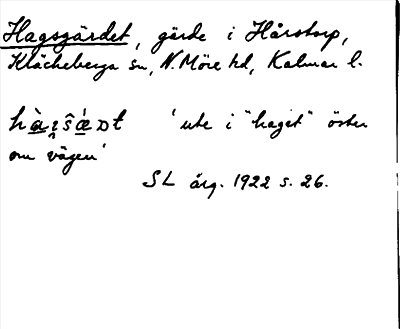 Hagsgärdet, gärde i Hårstorp,
Kläckeberga sn, N. Möre hd, Kalmar l.
'ute i "haget" öster
om vägen'
SL årg. 1922 s. 26.